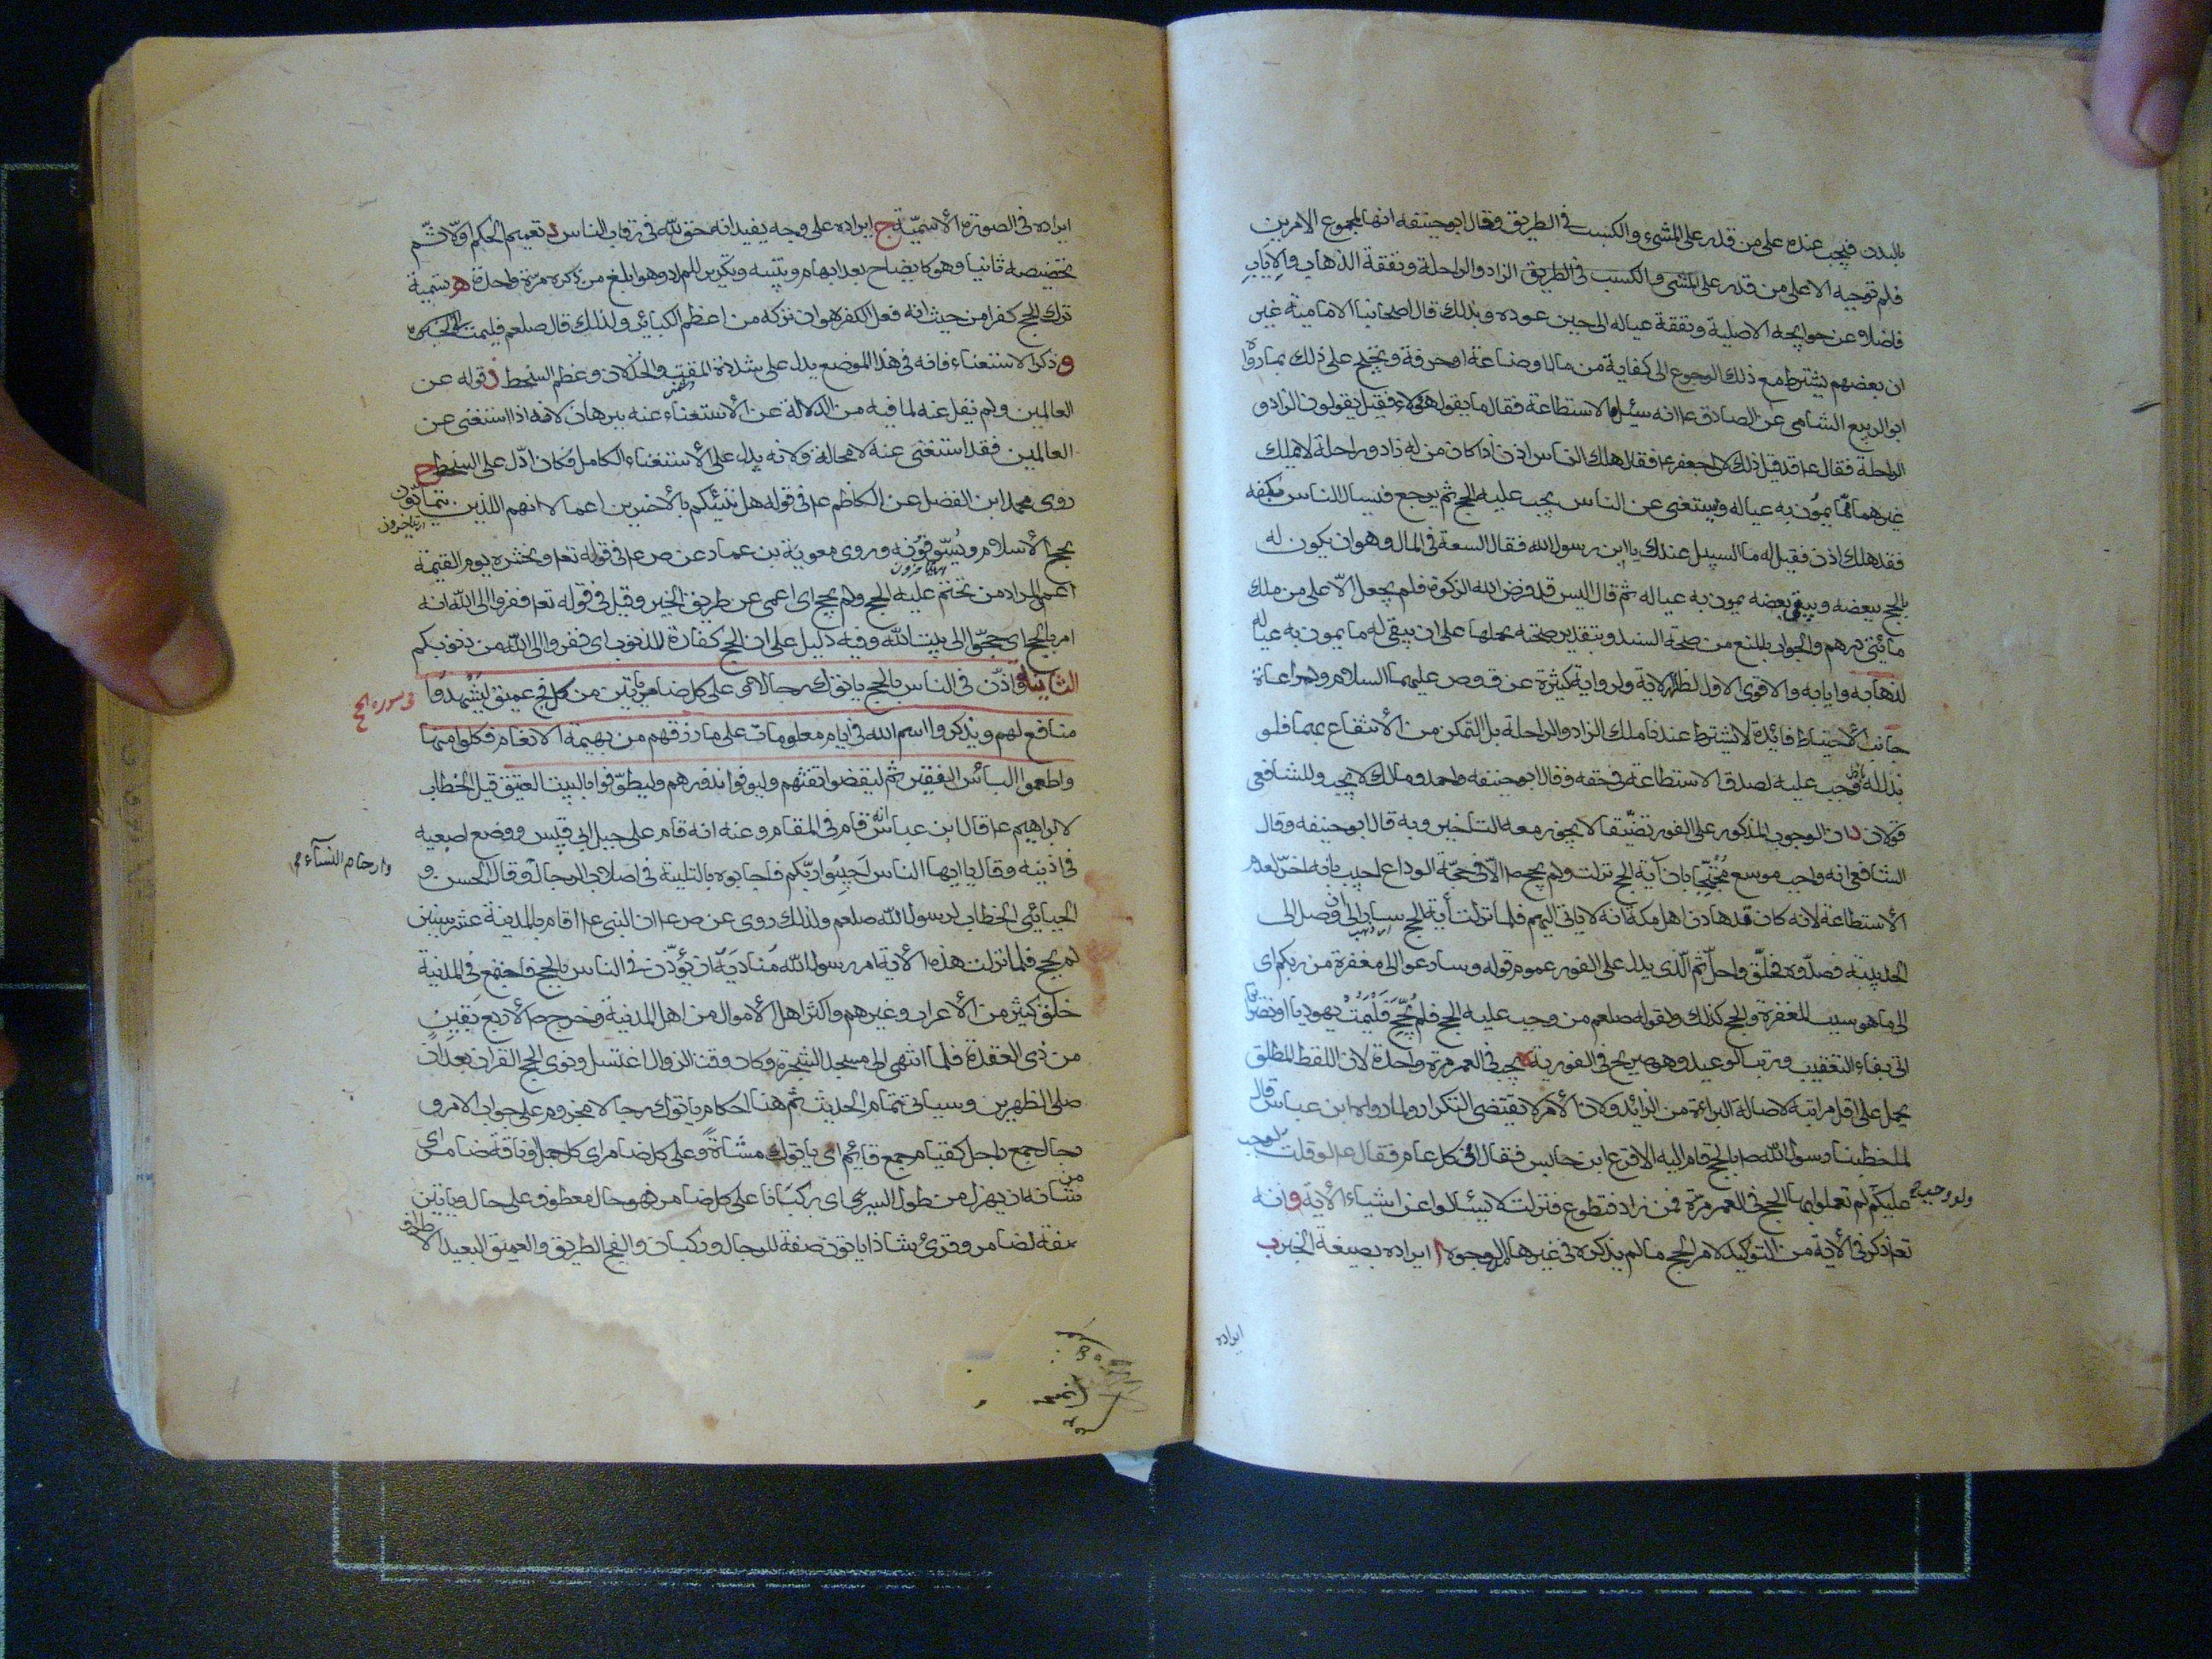 بالبدن فيجب عنده على من قدر على المشي والكسب في الطريق وقال ابو حنيفه انها بمجموع الامرين
فلم توجبه الا على من قدر على المشي والكسب في الطريق الزاد والراحلة ونفقة الذهاب والاياب
فاضلا عن حوايجه الاصلية ونفقة عياله الى حين عوده وبذلك قال اصحابنا الامامية غير
ان بعضهم يشترط مع ذلك الرجوع الى كفاية من مال او صناعة او حرفة ويحتج على ذلك بما رواه
ابو الربيع الشامى عن الصادق ع انه سئل ما الاستطاعة فقال ما يقول هؤلاء فقيل يقولون الزاد و
الراحلة فقال ع قد قيل ذلك لابي جعفر ع فقال هلك الناس اذن اذا كان من له زاد وراحلة لا يملك
غيرهما مما يمون به عياله ويستغنى عن الناس يجب عليه الحج ثم يرجع فيسال الناس بكفه
فقد هلك اذن فقيل له ما السبيل عندك يا ابن رسول الله فقال السعة في المال وهو ان يكون له
يحج ببعضه ويبقى بعضه يمون به عياله ثم قال اليس قد فرض الله الزكوة فلم يجعل الا على من ملك
مائتى درهم والجواب بالمنع من صحة السند وبتقدير صحته بحملها على ان يبقى له ما يمون به عياله
لذهابه وايابه والاقوى الاول لظاهر الاية ولرواية كثيرة عن ق وص عليهما السلام ولمراعاة
جانب الاحتياط فائدة لا يشترط عندنا ملك الزاد والراحلة بل التمكن من الانتفاع بهما فلو
بذلا له وجب عليه لصدق الاستطاعة في حقه وقال ابو حنيفه واحمد ومالك لا يجب وللشافعى
قولان د ان الوجوب المذكور على الفور تضيقا لا يجوز معه التاخير وبه قال ابو حنيفه وقال
الشافعى انه واجب موسع محتجا بان آية الحج نزلت ولم يحج ص الا في حجة الوداع اجيب بانه اخر لعدم
الاستطاعة لانه كان قد هادن اهل مكة انه لا ياتى اليهم فلما نزلت آية الحج سار الى ان وصل الى
الحديبية فصدوه فحلق واحل ثم الذى يدل على الفور عموم قوله وسارعوا الى مغفرة من ربكم اى
الى ما هو سبب المغفرة والحج كذلك ولقوله صلعم من وجب عليه الحج فلم يحج فليمت يهوديا او نصرانيا
اتى بفاء التعقيب ورتب الوعيد وهو صريح في الفورية ه يجب في العمر مرة واحدة لان اللفظ المطلق
يحمل على اقل مراتبه لاصالة البراءة من الزائد ولان الامر لا يقتضى التكرار ولما رواه ابن عباس قال
لما خطبنا رسول الله ص بالحج قام اليه الاقرع ابن حابس فقال افي كل عام فقال ع لو قلت لوجب
ولو وجب عليكم لم تعملوا بها الحج في العمر مرة فمن زاد فتطوع فنزلت لا تسئلوا عن اشياء الاية و انه
تعا ذكر في الاية من التوكيد لامر الحج ما لم يذكره في غيرها لوجوه ا ايراده بصيغة الخبر ب
ايراده
ايراده في الصورة الاسمية ج ايراده على وجه يفيد انه حق لله في رقاب الناس د تعميم الحكم اولا ثم
تخصيصه ثانيا وهو كايضاح بعد ابهام وتثنية وتكرير للمراد وهو ابلغ من ذكره مرة واحدة ه تسمية
ترك الحج كفرا من حيث انه فعل الكفرة وان تركه من اعظم الكبائر ولذلك قال صلعم فليمت الخبر
و ذكر الاستغناء فانه في هذا الموضع يدل على شدة المقت والخذلان وعظم السخط ز قوله عن
العالمين ولم يقل عنه لما فيه من الدلالة عن الاستغناء عنه ببرهان لانه اذا استغنى عن
العالمين فقد استغنى عنه لا محالة ولانه يدل على الاستغناء الكامل فكان ادل على السخط ح
روى محمد ابن الفضيل عن الكاظم ع في قوله هل ننبئكم بالاخسرين اعمالا انهم الذين يتمادون
اي يتاخرون
بحج الاسلام ويسوفونه وروى معوية بن عمار عن ص ع في قوله تعا ونحشره يوم القيمة
اعمى المراد من تحتم عليه الحج ولم يحج اى اعمى عن طريق الخير وقيل في قوله تعا ففروا الى الله انه
امر بالحج اى حجوا الى بيت الله وفيه دليل على ان الحج كفارة للذنوب اى ففروا الى الله من ذنوبكم
الثانية واذن في الناس بالحج ياتوك رجالا وعلى كل ضامر ياتين من كل فج عميق ليشهدوا
في سوره الحج
منافع لهم ويذكروا اسم الله في ايام معلومات على ما رزقهم من بهيمة الانعام فكلوا منها
واطعموا البائس الفقير ثم ليقضوا تفثهم وليوفوا نذورهم وليطوفوا بالبيت العتيق قيل الخطاب
لابراهيم ع قال ابن عباس انه قام في المقام وعنه انه قام على جبل ابى قبيس ووضع اصبعيه
في اذنيه وقال يا ايها الناس اجيبوا ربكم فاجابوه بالتلبية في اصلاب الرجال وقال الحسن و
وارحام النسآء
الجبائي الخطاب لرسول الله صلعم ولذلك روى عن ص ع ان النبى ع اقام بالمدينة عشر سنين
لم يحج فلما نزلت هذه الاية امر رسول الله مناديه ان يؤذن في الناس بالحج فاجتمع في المدينة
خلق كثير من الاعراب وغيرهم واكثر اهل الاموال من اهل المدينة وخرج ص لاربع بقين
من ذى القعدة فلما انتهى الى مسجد الشجرة وكان وقت الزوال اغتسل ونوى الحج القران بعد ان
صلى الظهرين وسياتى تمام الحديث ثم هنا احكام ياتوك رجالا مجزوم على جواب الامر و
رجال جمع راجل كقيام جمع قائم اى ياتوك مشاة وعلى كل ضامر اى كل جمل وناقة ضامر اى
من شانه ان يهزل من طول السير اى ركبانا على كل ضامر فهو حال معطوف على حال وياتين
صفة لضامر وقرئ شاذا ياتون صفة للرجال وركبان والفج الطريق والعميق البعيد الاطراف